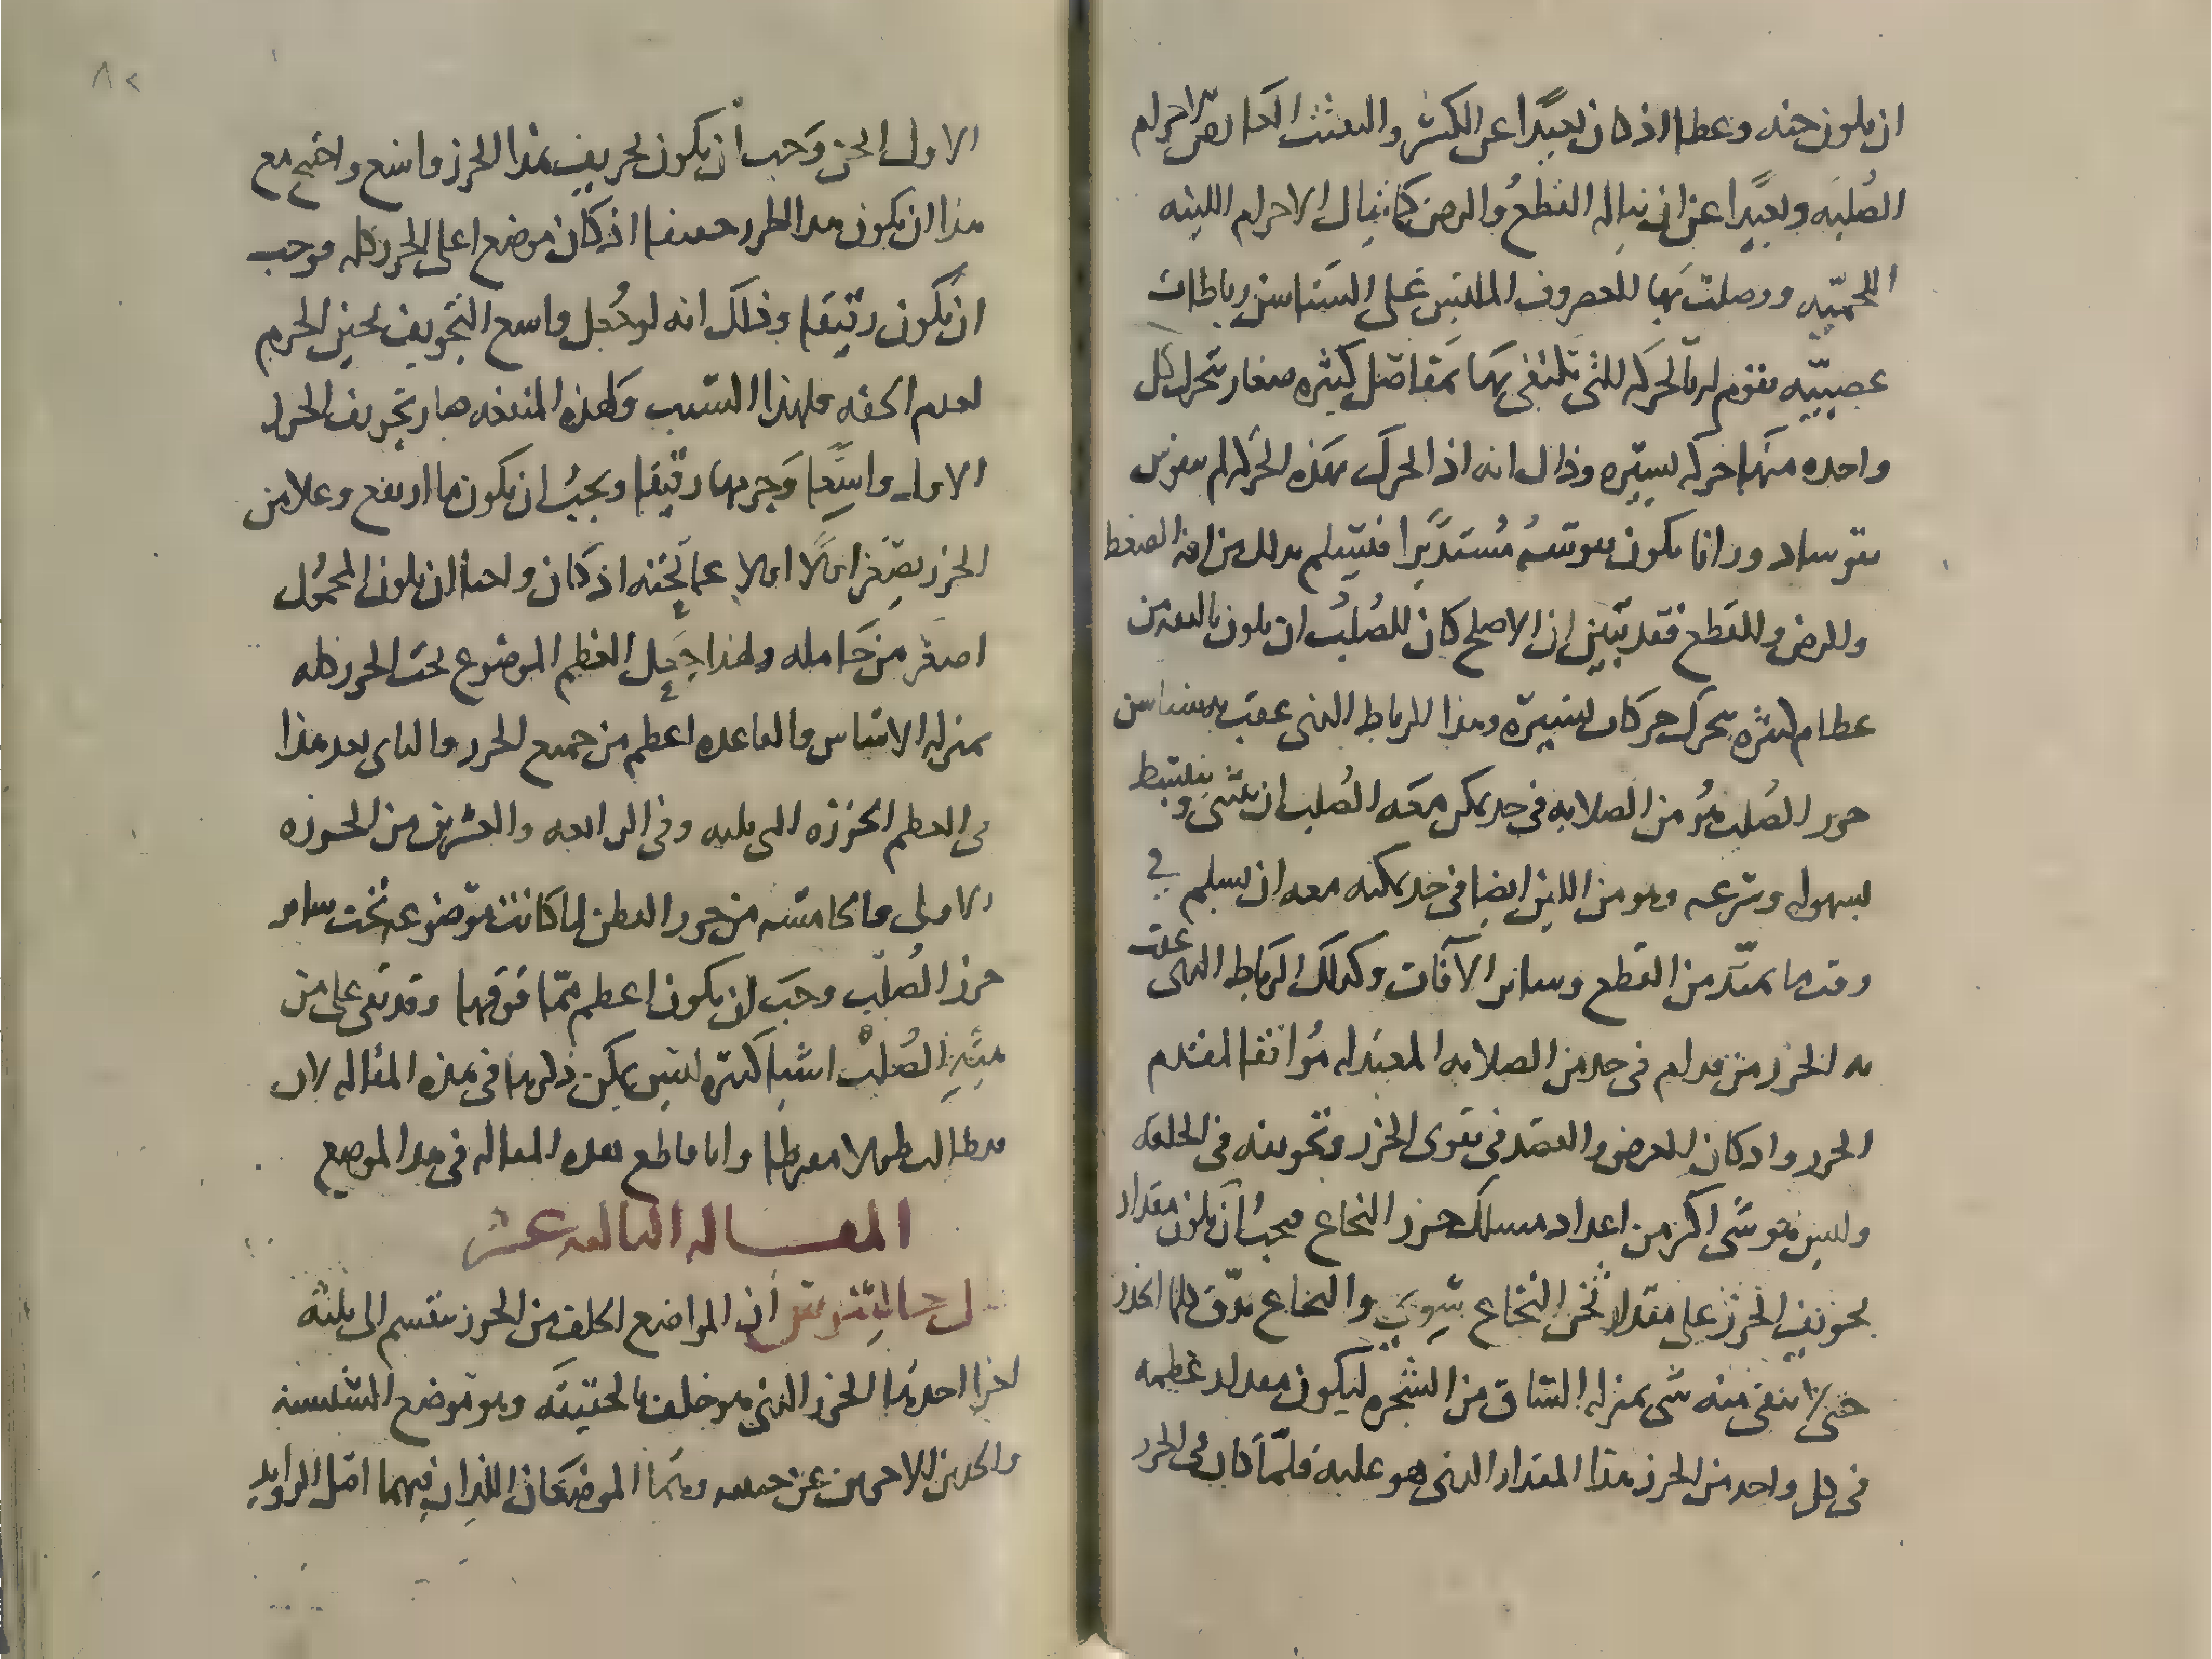 ان يكون جنه وعطا اذ كان بعيدا عن الكسر والتعتت العارض للاجرام
الصلبه وبعيدا عن ان يناله القطع والرض كما ينال الاجرام اللينه
اللحميه ووصلت بها للغضروف الملبس على السناسن رباطات
عصبيه يقوم له بالحركه التي تلتقى بها بمفاصل كثيره صغار يتحرك كل
واحده منها حركه يسيره وذلك انه اذا تحرك بهذه الحركه لم يتقوس
تقوسا دورانا يكون تقوسه مستديرا فيسلم بذلك من افه الضغط
والرض والقطع فقد تبين ان الاصلح كان للصلب ان يكون بالعه من
عظام كثيره يتحرك حركات يسيره وهذا الرباط الذى عقب به سناسن
خرز الصلب هو من الصلابه فى حد يمكن معه الصلب ان ينثنى وينبسط
بسهوله وسرعه وهو من اللين ايضا فى حد يمكنه معه ان يسلم فى
وقت ما يمتد من القطع وسائر الآفات وكذلك الرباط الذى عقب
به الخرز من قدام فى حد من الصلابه المعتدله موافقا لمقدم
الخرز واذ كان الغرض والقصد فى تقوى الخرز وتجويفه فى الخلقه
وليس هو شى اكثر من اعداد مسلك حرز النخاع فيجب ان يكون مقدار
تجويف الخرز على مقدار ثخن النخاع سوى والنخاع يدق كلما انحدر
حتى لا يبقى منه شى بمنزله الساق من الشجره ليكون مقدار عظمه
فى كل واحد من الخرز هذا المقدار الذى هو عليه فلما كان فى الخرز
٨٢
الاول اثخن وجب ان يكون تجويف هذا الخرز واسع واحتيج مع
هذا ان يكون هذا الخرز خفيفا اذ كان موضع اعلى الخرز كله فوجب
ان يكون رقيقا وذلك انه لو جعل واسع التجويف ثخين الجرم
لعدم الخفه فلهذا السبب ولهذه المنفعه صار تجويف الخرز
الاول واسعا وجرمها رقيقا ويجب ان يكون ما ارتفع وعلا من
الخرز يصغر اولا اولا عما تحته اذ كان واجبا ان يكون المحمول
اصغر من حامله ولهذا جعل العظم الموضوع تحت الخرز كله
بمنزله الاساس والقاعده اعظم من جميع الخرز والثانى بعد هذا
فى العظم الخرزه التى تليه وفى الرابعه والعشرين من الخرزه
الاولى والخامسه من خرز القطن لما كانت موضوعه تحت سائر
خرز الصلب وجب ان يكون اعظم مما فوقها وقد بقى على من
هيئة الصلب اشيا كثيره ليس يمكن ذكرها فى هذه المقاله لان
بها تطول مفرطا وانا قاطع هذه المقاله فى هذا الموضع
المقــاله الثالثه عشر
قال جالينوس ان المواضع الخلف من الخرز ينقسم الى ثلثه
اجزا احدها الخرز الذى هو خلف بالحقيقه وهو موضع السنسنه
والجزين الاخرين عن جنبيه وهما الموضعان اللذان فيهما اصل الزوايد